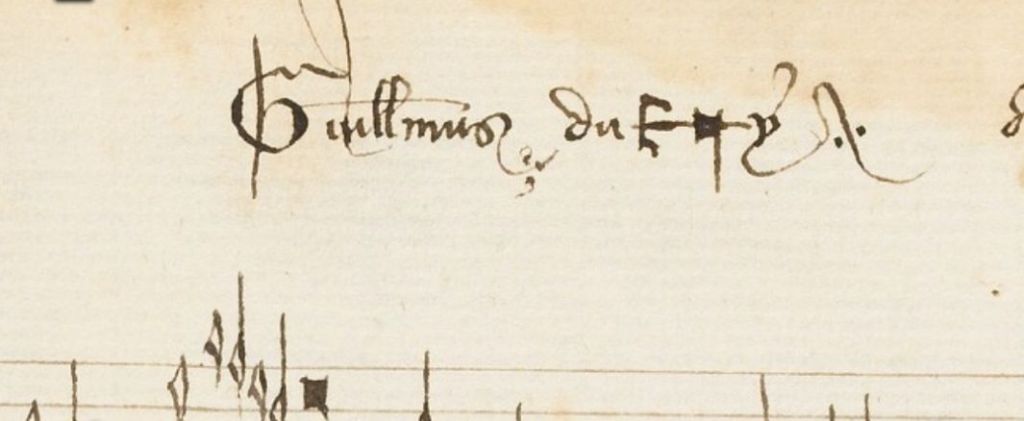 Guillmus du fa y